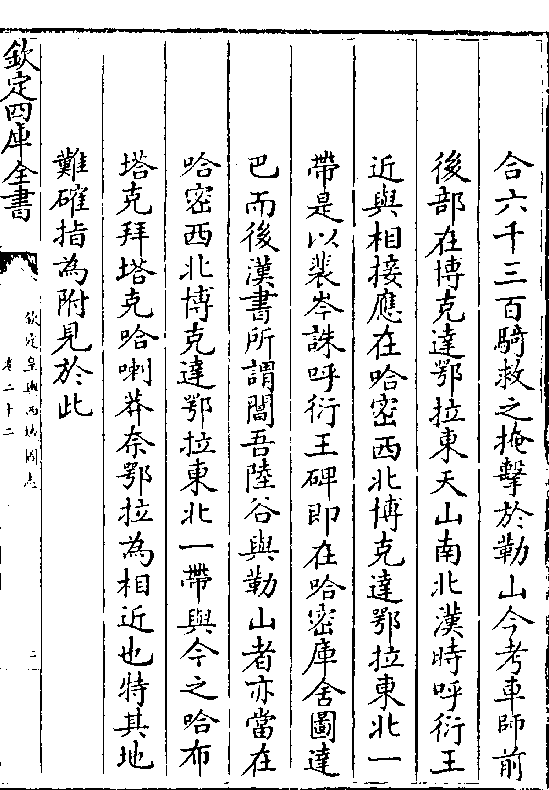 合六千三百騎救之掩擊於勒山今考車師前
後部在博克達鄂拉東天山南北漢時呼衍王
近與相接應在哈密西北博克達鄂拉東北一
帶是以裴岑誅呼衍王碑即在哈密庫舍圖達
巴而後漢書所謂閶吾陸谷與勒山者亦當在
哈密西北博克達鄂拉東北一帶與今之哈布
塔克拜塔克哈喇莽奈鄂拉為相近也特其地
難確指為附見於此
欽定四庫全書
欽定皇輿西域圖志
卷二十二
二